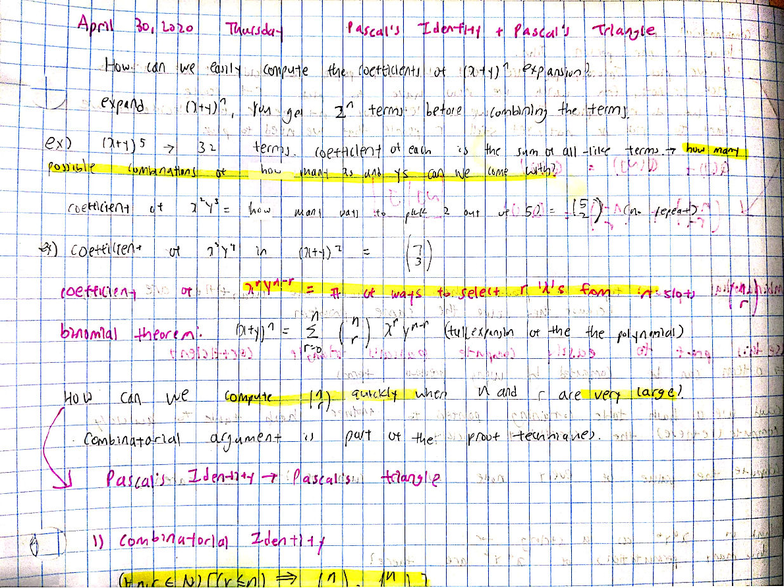 April 30, 2020 Thursday Pascal's Identity + Pascal's Triangle
How can we easily compute the coefficients of (x+y)^n expansion?
expand (x+y)^n, you get 2^n terms before combining the terms.
ex) (x+y)^5 → 32 terms. coefficient of each is the sum of all like terms → how many
possible combinations of how many xs and ys can we come with?
coefficient of x²y³ = how many ways to pick 2 out of 5 = (5 2) (no repeat)
ex) coefficient of in = (7 3)
coefficient of x^r y^{n-r} = # of ways to select r 'x's from n slots (n r)
binomial theorem: (x+y)^n = Σ_{r=0}^{n} (n r) x^r y^{n-r} (full expansion of the the polynomial)
How can we compute (n r) quickly when n and r are very large?
Combinatorial argument is part of the proof techniques.
Pascal's Identity → Pascal's triangle
1) Combinatorial Identity
(∀n,r ∈ N)[(r≤n) ⇒ (n (n